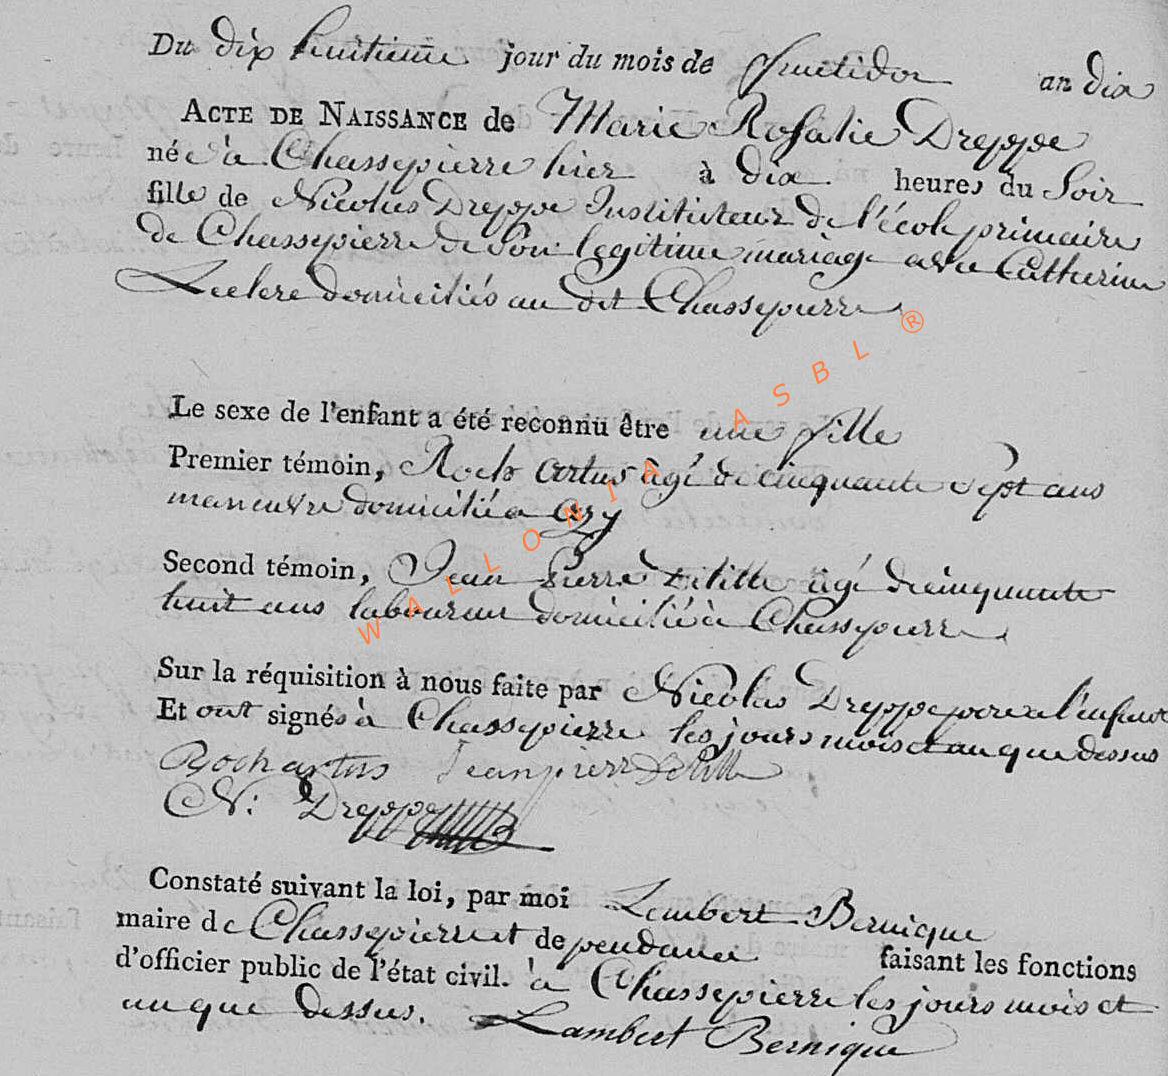 Du dix huitieme jour du mois de fructidor an dix
ACTE DE NAISSANCE de Marie Rosalie Dreppe
née à Chassepierre hier à dix heures du Soir
fille de Nicolas Dreppe Instituteur de l'école primaire
de Chassepierre de son legitime mariage avec Catherine
Leclere domiciliés au dit Chassepierre
Le sexe de l'enfant a été reconnu être une fille
Premier témoin, Roch artus âgé de cinquante sept ans
manœuvre domicilié à azy
Second témoin, Jean Pierre Delille âgé de cinquante
huit ans laboureur domicilié à Chassepierre
Sur la réquisition à nous faite par Nicolas Dreppe pere a l'enfant
Et ont signés à Chassepierre les jours mois et an que dessus
Roch artus Jean pierre Delille
N: Dreppe
Constaté suivant la loi, par moi Lambert Bernique
maire de Chassepierre et dependance faisant les fonctions
d'officier public de l'état civil. à Chassepierre les jours mois et
an que dessus. Lambert Bernique
WALLONIA ASBL ®